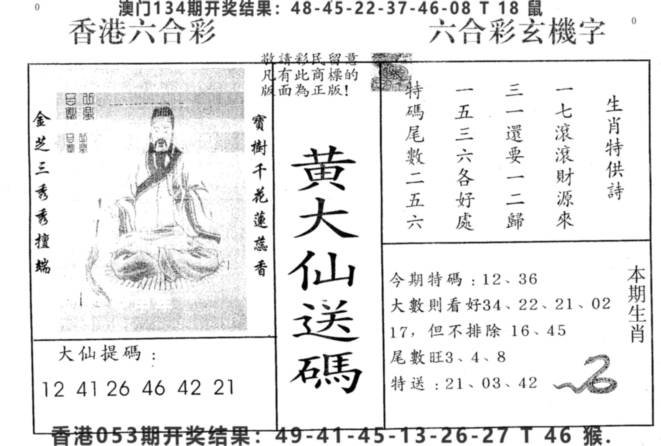 澳门134期开奖结果：48-45-22-37-46-08 T 18 鼠
香港六合彩
六合彩玄機字
敬請彩民留意
凡有此商標的
版面為正版!
金芝三秀秀檀端
寶樹千花蓮蕊香
黄大仙送碼
生肖特供詩
一七滾滾財源來
三一還要一二歸
一五三六各好處
特碼尾數二五六
今期特碼：12、36
大數則看好34、22、21、02
17，但不排除 16、45
尾數旺3、4、8
特送：21、03、42
本期生肖
大仙提碼：
12 41 26 46 42 21
香港053期开奖结果：49-41-45-13-26-27 T 46 猴.